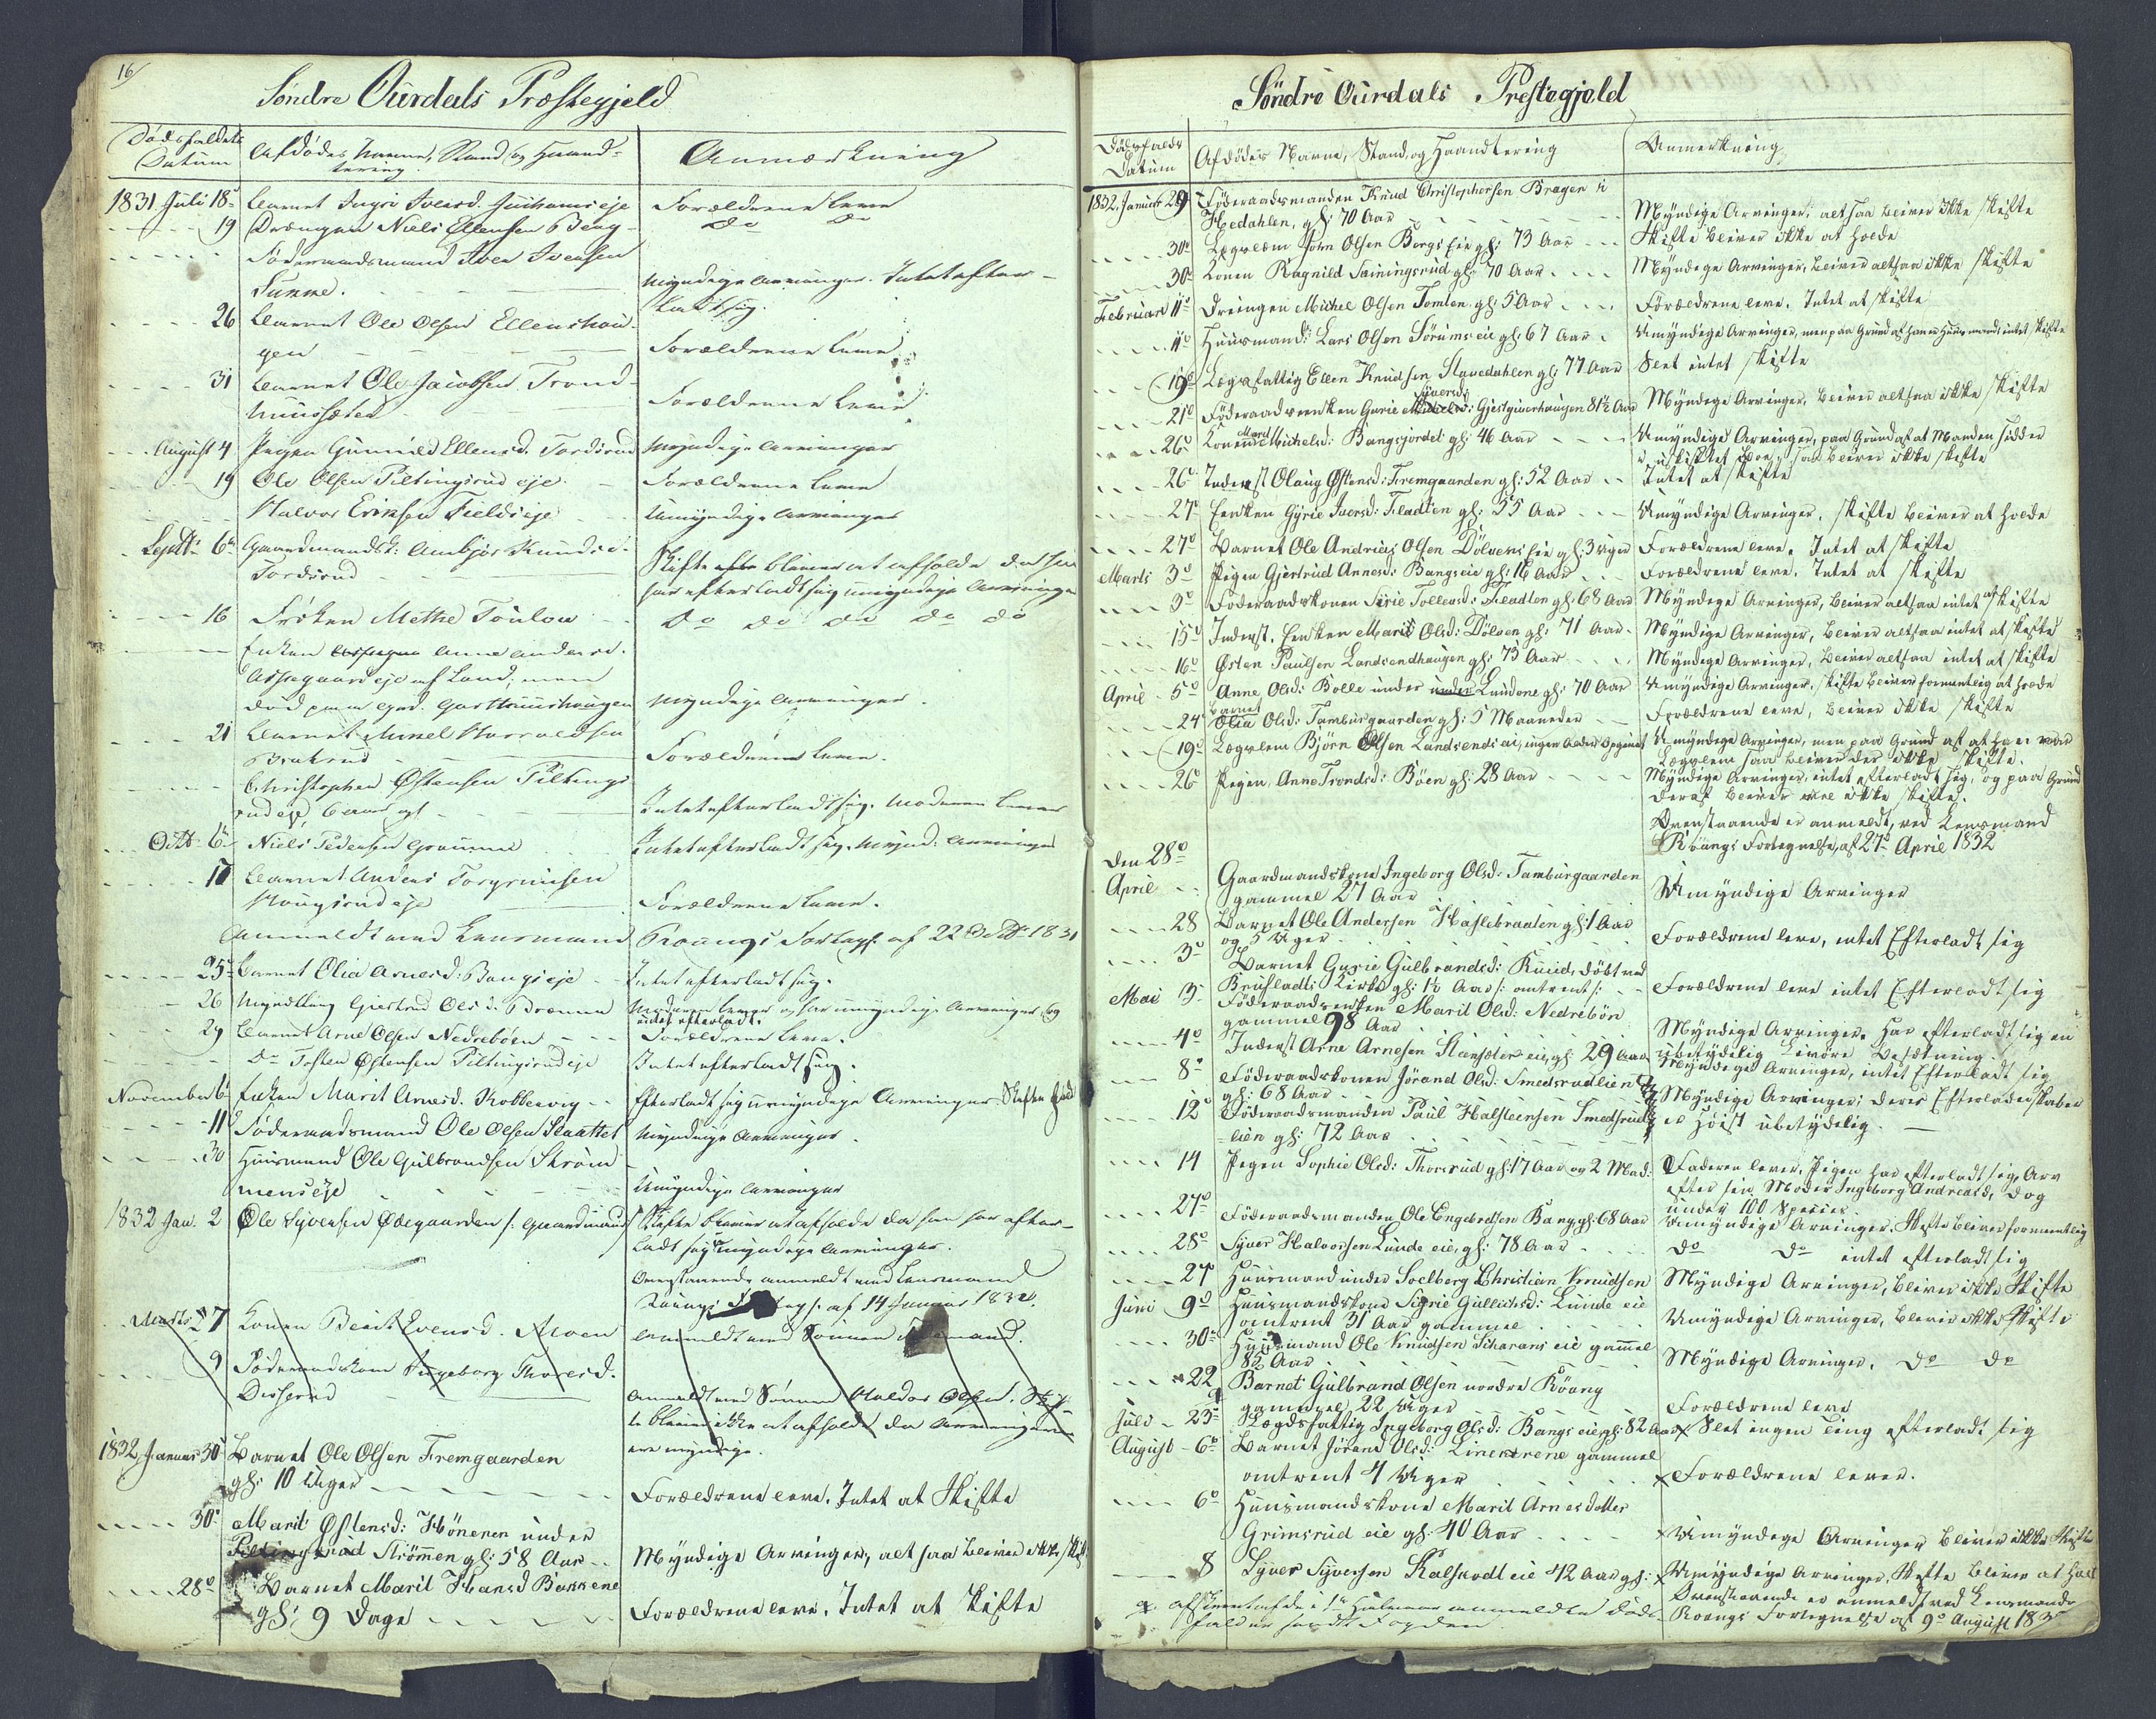 16/
Søndre Ourdals Præstegjeld
Dødsfaldets Datum
Afdødes Navne, Stand og Haand-
tering.
Anmærkning
1831 Juli 18de Barnet Ingri Iversd. eje Forældrene leve
19 Drengen Niels Ellensen Bang do do
Føderaadsmand Iver Ivensen
Sunne. Myndige Arvinger. Intet efter-
ladt sig.
26 Barnet Ole Olsen Ellenshou-
gen Forældrene leve
31 Barnet Ole Jacobsen Trond-
huussæter Forældrene leve
August 4 Pigen Gunnild Ellensd. Tordsrud Myndige Arvinger
19 Ole Olsen Piltingsrud eje Forældrene leve
Halvor Eriksen Fieldseje Umyndige Arvinger
Septbr 6te Gaardmandsk: Ambjør Knudsd.
Tordsrud Skifte bliver at afholde da hun
har efterladt sig umyndige Arvinger
16 Frøken Methe Toulow do do do do do
Enken Anne Andersd.
eje af Land; men
død paa Myndige Arvinger.
21 Barnet Mikkel Harvoldsen
Brakrud Forældrene leve.
Christopher Østensen Piltings-
rud eje, 6 Aar gl. Intet efterladt sig. Moderen lever
Octbr 6te Niels Pedersen Intet efterladt sig. Mynd: Arvinger
17 Barnet Anders Torgrimsen
eje Forældrene leve.
Anmeldt med Lensmand Røangs Fortegn. af 22 Octbr 1831
25de Barnet Olia Arnesd: Bangs eje Intet efterladt sig.
26 Gjertrud Olsd. Brænna Moderen lever og har umyndige Arvinger og
intet efterladt.
29 Barnet Arne Olsen Nedrebøen Forældrene leve.
do Tosten Østensen Piltingsrud eje Intet efterladt sig.
November 6te Enken Marit Arnesd. Kobbervig Efterladt sig umyndige Arvinger Skiftes
11 Føderaadsmand Ole Olsen Slaattet Myndige Arvinger.
30 Huusmand Ole Gulbrandsen Strøm-
mens eje Umyndige Arvinger
1832 Jan. 2 Ole Syversen Ødegaarden /: Gaardmand :/ Skifte bliver at afholde da han har efter-
ladt sig umyndige Arvinger.
Ovenstaaende anmeldt med Lensmand
Røangs af 14 Januar 1832.
Marts 27 Konen Berit Evensd. Moen anmeldt ved Sønnen
9 Føderaadskone Ingeborg Thoresd.
Disserud anmeldt ved Sønnen Haldor Olsen. Skif-
te bliver ikke at afholde da Arvingerne
ere myndige.
1832 Januar 30te Barnet Ole Olsen Fremgaarden
gl: 10 Uger Forældrene leve. Intet at Skifte
30te Marit Østensd: Hønenen under
Strømmen gl: 58 Aar Myndige Arvinger, altsaa bliver ikke Skifte
28de Barnet Marit Hansd Bakkene
gl: 9 Dage Forældrene leve. Intet at Skifte
Søndre Ourdals Prestegjeld
Dødsfalds Datum
Afdødes Navne, Stand og Haandtering
Anmerkning
1832, Januar 29 Føderaadsmanden Knud Christophersen Bragen i
Hedahlen, gl: 70 Aar Myndige Arvinger, altsaa bliver ikke skifte
30te Lægslem John Olsen Borgs Eie gl: 73 Aar Skifte bliver ikke at holde
30te Konen Ragnild Sainingsrud gl: 70 Aar Myndige Arvinger, bliver altsaa ikke skifte
Februari 11te Drengen Michel Olsen Tomlen gl: 5 Aar Forældrene leve. Intet at skifte
11te Huusmand: Lars Olsen Sørums eie gl: 67 Aar Umyndige Arvinger, men paa Grund af han er Huusmand intet skifte
19de Lægsfattig Ellen Knudsen Stavedahlen gl: 77 Aar Slet intet skifte
21de Føderaadsenken Gurie Syversd: Gjestgiverhaugen 81½ Aar Myndige Arvinger, bliver altsaa ikke skifte
26de Konen Marit Michelsd: Bangsjordet gl: 46 Aar Umyndige Arvinger, paa Grund af at Manden sidder
i uskiftet Boe, saa bliver ikke skifte
26de Inderst Olaug Østensd: Fremgaarden gl: 52 Aar Intet at skifte
27de Enken Gyrie Iversd: Fladten gl: 55 Aar Umyndige Arvinger, skifte bliver at holde
27de Barnet Ole Andreas Olsen Dølvens Eie gl: 3 Uger Forældrene leve. Intet at skifte
Marts 3de Pigen Gjertrud Annesd: Bangs eie gl: 16 Aar Forældrene leve. Intet at skifte
3de Føderaadskonen Sirie Tollevsd: Fladten gl: 68 Aar Myndige Arvinger, bliver altsaa intet at skifte
15de Inderst. Enken Marit Olsd: Dølven gl: 71 Aar Myndige Arvinger, bliver altsaa intet at skifte
16de Østen Paulsen Landsendhaugen gl: 73 Aar Myndige Arvinger, bliver altsaa intet at skifte
April 5te Anne Olsd: Bolle under Lundene gl: 70 Aar Umyndige Arvinger, skifte bliver formentlig at holde
24 Barnet Olia Olsd: Tambursgaarden gl: 5 Maaneder Forældrene leve, bliver ikke skifte
19de Lægslem Bjørn Olsen Landsends eie, ingen Alder Opgivet Umyndige Arvinger, men paa Grund af at han var
Lægslem saa bliver der ikke skifte.
26 Pigen Anne Trondsd: Bøen gl: 28 Aar Myndige Arvinger, intet efterladt sig, og paa Grund
deraf bliver vel ikke skifte.
Ovenstaaende er anmeldt, ved Lensmand
Røangs Fortegnelse, af 27de April 1832
Den 28de April Gaardmandskone Ingeborg Olsd: Tamburgaarden
gammel 27 Aar Umyndige Arvinger
28 Barnet Ole Andersen Haslebraaten gl: 1 Aar
og 5 Uger Forældrene leve, intet Efterladt sig
3de Barnet Gurie Gulbrandsd: Ruud, døbt ved
Brufladts Kirke gl: 1½ Aar /: omtrent :/ Forældrene leve intet Efterladt sig
Mai 3de Føderaadsenken Marit Olsd: Nedrebøn
gammel 98 Aar Myndige Arvinger. Har efterladt sig en
ubetydelig Besætning.
4de Inderst Arne Arnesen Steensæter eie, gl: 29 Aar Myndige Arvinger, intet Efterladt sig
8de Føderaadskonen Jørand Olsd: Smedsrudlien
gl: 68 Aar Myndige Arvinger; deres Efterladenskaber
12te Føderaadsmanden Paul Halsteensen Smedsrud-
lien gl: 72 Aar er høist ubetydelig.
14 Pigen Sophie Olsd: Thorsrud gl: 17 Aar og 2 Mdr: Faderen lever. Pigen har efterladt sig, Arv
efter sin Moder Ingeborg Andreasd, dog
under 100 Species.
27de Føderaadsmanden Ole Engebretsen Bang, gl: 68 Aar Umyndige Arvinger, Skifte bliver formentlig
28de Syver Halvorsen Lunde eie, gl: 78 Aar do do intet efterladt sig
27de Huusmand under Soelberg Christian Knudsen Myndige Arvinger, bliver ikke Skifte
Juni 9de Huusmandskone Sigrie Gullichsd: Lunde eie
omtrent 31 Aar gammel Umyndige Arvinger, bliver ikke Skifte
30te Huusmand Ole Knudsen Scharans eie gammel
85 Aar Myndige Arvinger. do do
22 Barnet Gulbrand Olsen nordre Røang
gammel 22 Uger Forældrene leve
Juli 23de Lægdsfattig Ingeborg Olsd: Bangs eie, gl: 82 Aar Slet ingen ting efterladt sig
August 6te Barnet Jørand Olsd: gammel
omtrent 4 Uger x Forældrene lever.
6te Huusmandskone Marit Arnesdatter
Grimsrud eie gl: 40 Aar x Umyndige Arvinger bliver ikke Skifte
8 Syver Syversen Kalskodt eie 42 Aar gl: x Umyndige Arvinger, Skifte bliver at hold
Ovenstaaende er anmeldt ved Lensmands
Røangs Fortegnelse af 9de August 183
i 1ste Halvaar anmeldte Døds-
fald er sendt Fogden.